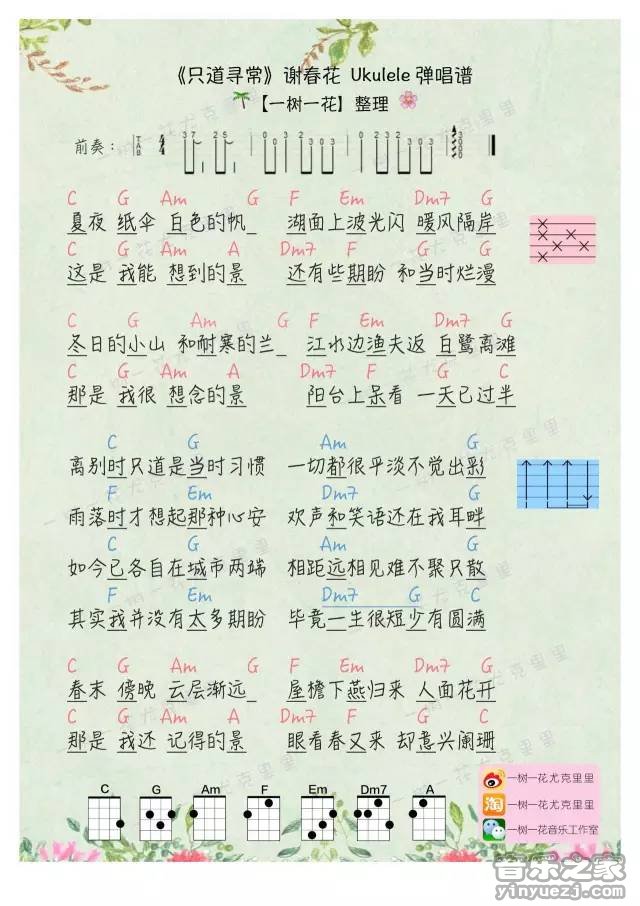 《只道寻常》谢春花 Ukulele 弹唱谱
【一树一花】整理
前奏: TAB 4/4 3 7 2 5 0 0 3 2 0 3 0 3 0 0 3 2 0 3 0 3 0 2 3 2 0 3 0 3 3 0 0 0
C G Am G F Em Dm7 G
夏夜 纸伞 白色的帆_ 湖面上波光闪 暖风隔岸
C G Am A Dm7 F G C
这是 我能 想到的景 还有些期盼 和当时烂漫
C G Am G F Em Dm7 G
冬日的小山 和耐寒的兰_ 江水边渔夫返 白鹭离滩
C G Am A Dm7 F G C
那是 我很 想念的景 阳台上呆看 一天已过半
C G Am G
离别时只道是当时习惯 一切都很平淡不觉出彩
F Em Dm7 G
雨落时才想起那种心安 欢声和笑语还在我耳畔
C G Am G
如今已各自在城市两端 相距远相见难不聚只散
F Em Dm7 G C
其实我并没有太多期盼 毕竟一生很短少有圆满
C G Am G F Em Dm7 G
春末 傍晚 云层渐远_ 屋檐下燕归来 人面花开
C G Am A Dm7 F G C
那是 我还 记得的景 眼看春又来 却惹兴阑珊
C G Am F Em Dm7 A
一树一花尤克里里
淘 一树一花尤克里里
一树一花音乐工作室
音乐之家
yinyuezj.com